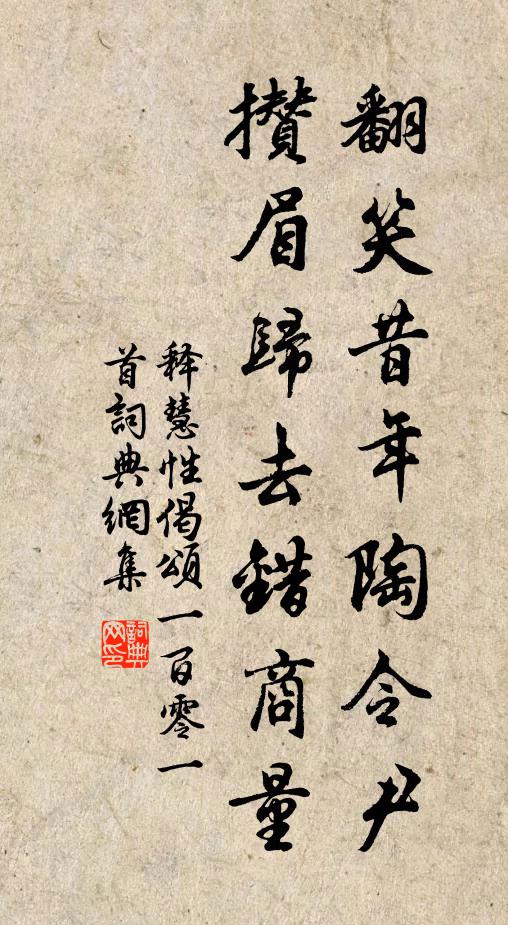 翻笑昔年陶令尹
攢眉歸去錯商量
释慧性偈頌一百零一
首詞典網集
詞典网印